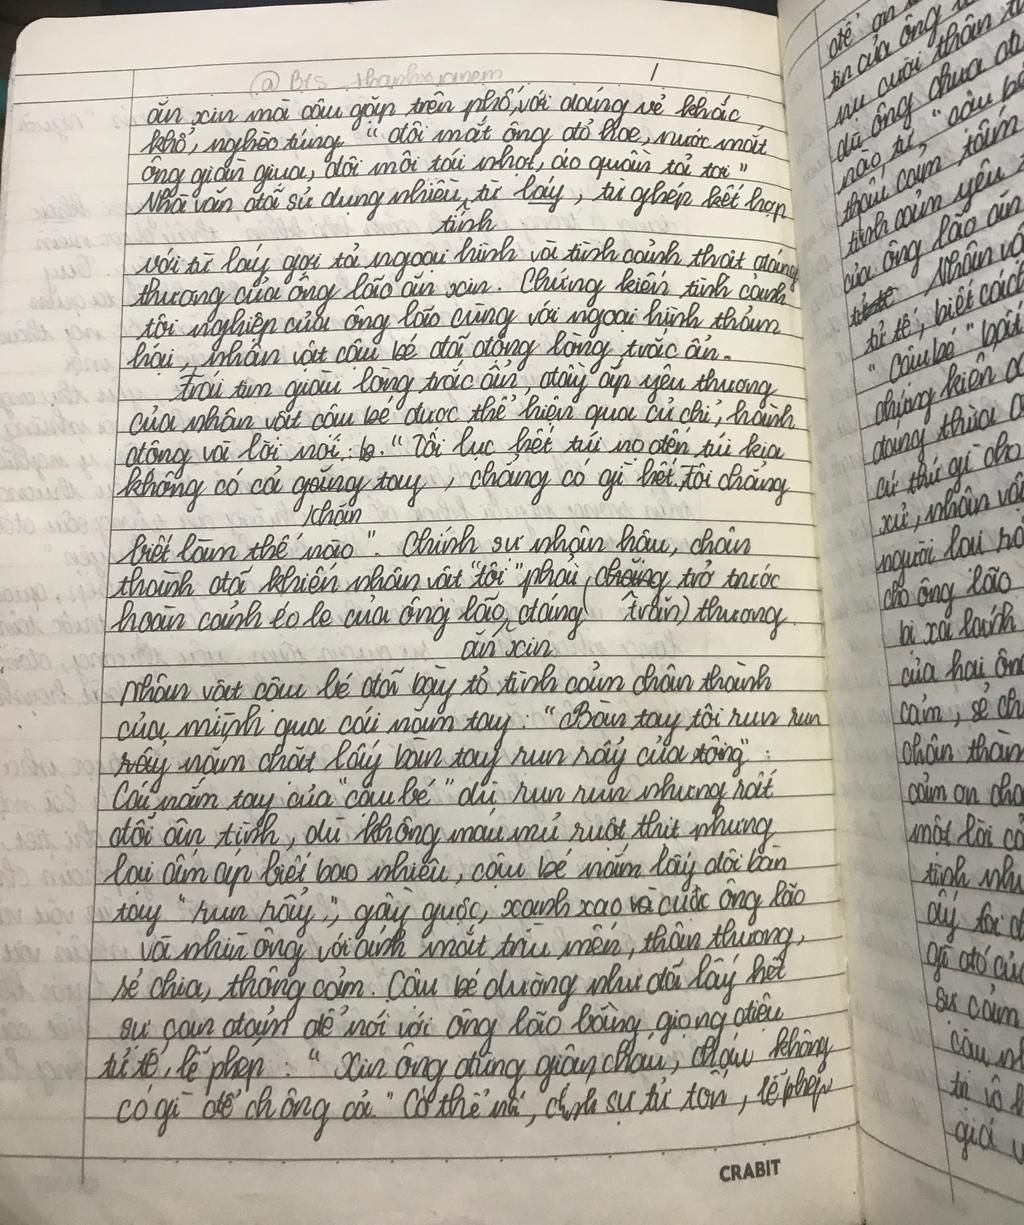 @Bts_thanhxuanem
1
ăn xin mà cậu gặp trên phố, với dáng vẻ khắc
khổ, nghèo túng. "đôi mắt ông đỏ hoe, nước mắt
ông giàn giụa, đôi môi tái nhợt, áo quần tả tơi"
Nhà văn đã sử dụng nhiều từ láy, từ ghép kết hợp
tính
với từ láy gợi tả ngoại hình và tình cảnh thật đáng
thương của ông lão ăn xin. Chứng kiến tình cảnh
tội nghiệp của ông lão cùng với ngoại hình thảm
hại, nhân vật cậu bé đã động lòng trắc ẩn.
Trái tim giàu lòng trắc ẩn, đầy ắp yêu thương
của nhân vật cậu bé được thể hiện qua cử chỉ, hành
động và lời nói: "Tôi lục hết túi nọ đến túi kia
không có cả găng tay, chẳng có gì hết, tôi chẳng
khăn
biết làm thế nào". Chính sự nhân hậu, chân
thành đã khiến nhân vật "tôi" phải trăn trở trước
hoàn cảnh éo le của ông lão đáng thương
ăn xin
Nhân vật cậu bé đã bày tỏ tình cảm chân thành
của mình qua cái nắm tay: "Bàn tay tôi run run
rẩy nắm chặt lấy bàn tay run rẩy của ông":
Cái nắm tay của "cậu bé" dù run run nhưng rất
đỗi ân tình, dù không máu mủ ruột thịt nhưng
lại ấm áp biết bao nhiêu, cậu bé nắm lấy đôi bàn
tay "run rẩy", gầy guộc, xanh xao của ông lão
và nhìn ông với ánh mắt trìu mến, thân thương,
sẻ chia, thông cảm. Cậu bé dường như đã lấy hết
sự can đảm để nói với ông lão bằng giọng điệu
tử tế, lễ phép: "Xin ông đừng giận cháu, cháu không
có gì để cho ông cả." Có thể nói, chính sự từ tốn, lễ phép
CRABIT
để ăn
tin của ông
nụ cười thân
dù ông chưa
nào từ "cậu bé
thấu cảm
tình cảm yêu
của ông lão ăn
Nhân vậ
tử tế, biết cách
"cậu bé"
chứng kiến
dạng
cứ thứ gì cho
xử, nhân vậ
người lại
cho ông lão
bị xa lánh
của hai ôn
cảm, sẻ ch
chân thàn
cảm ơn cho
một lời
tình như
ấy tôi
gì đó củ
sự cảm
câu
giá